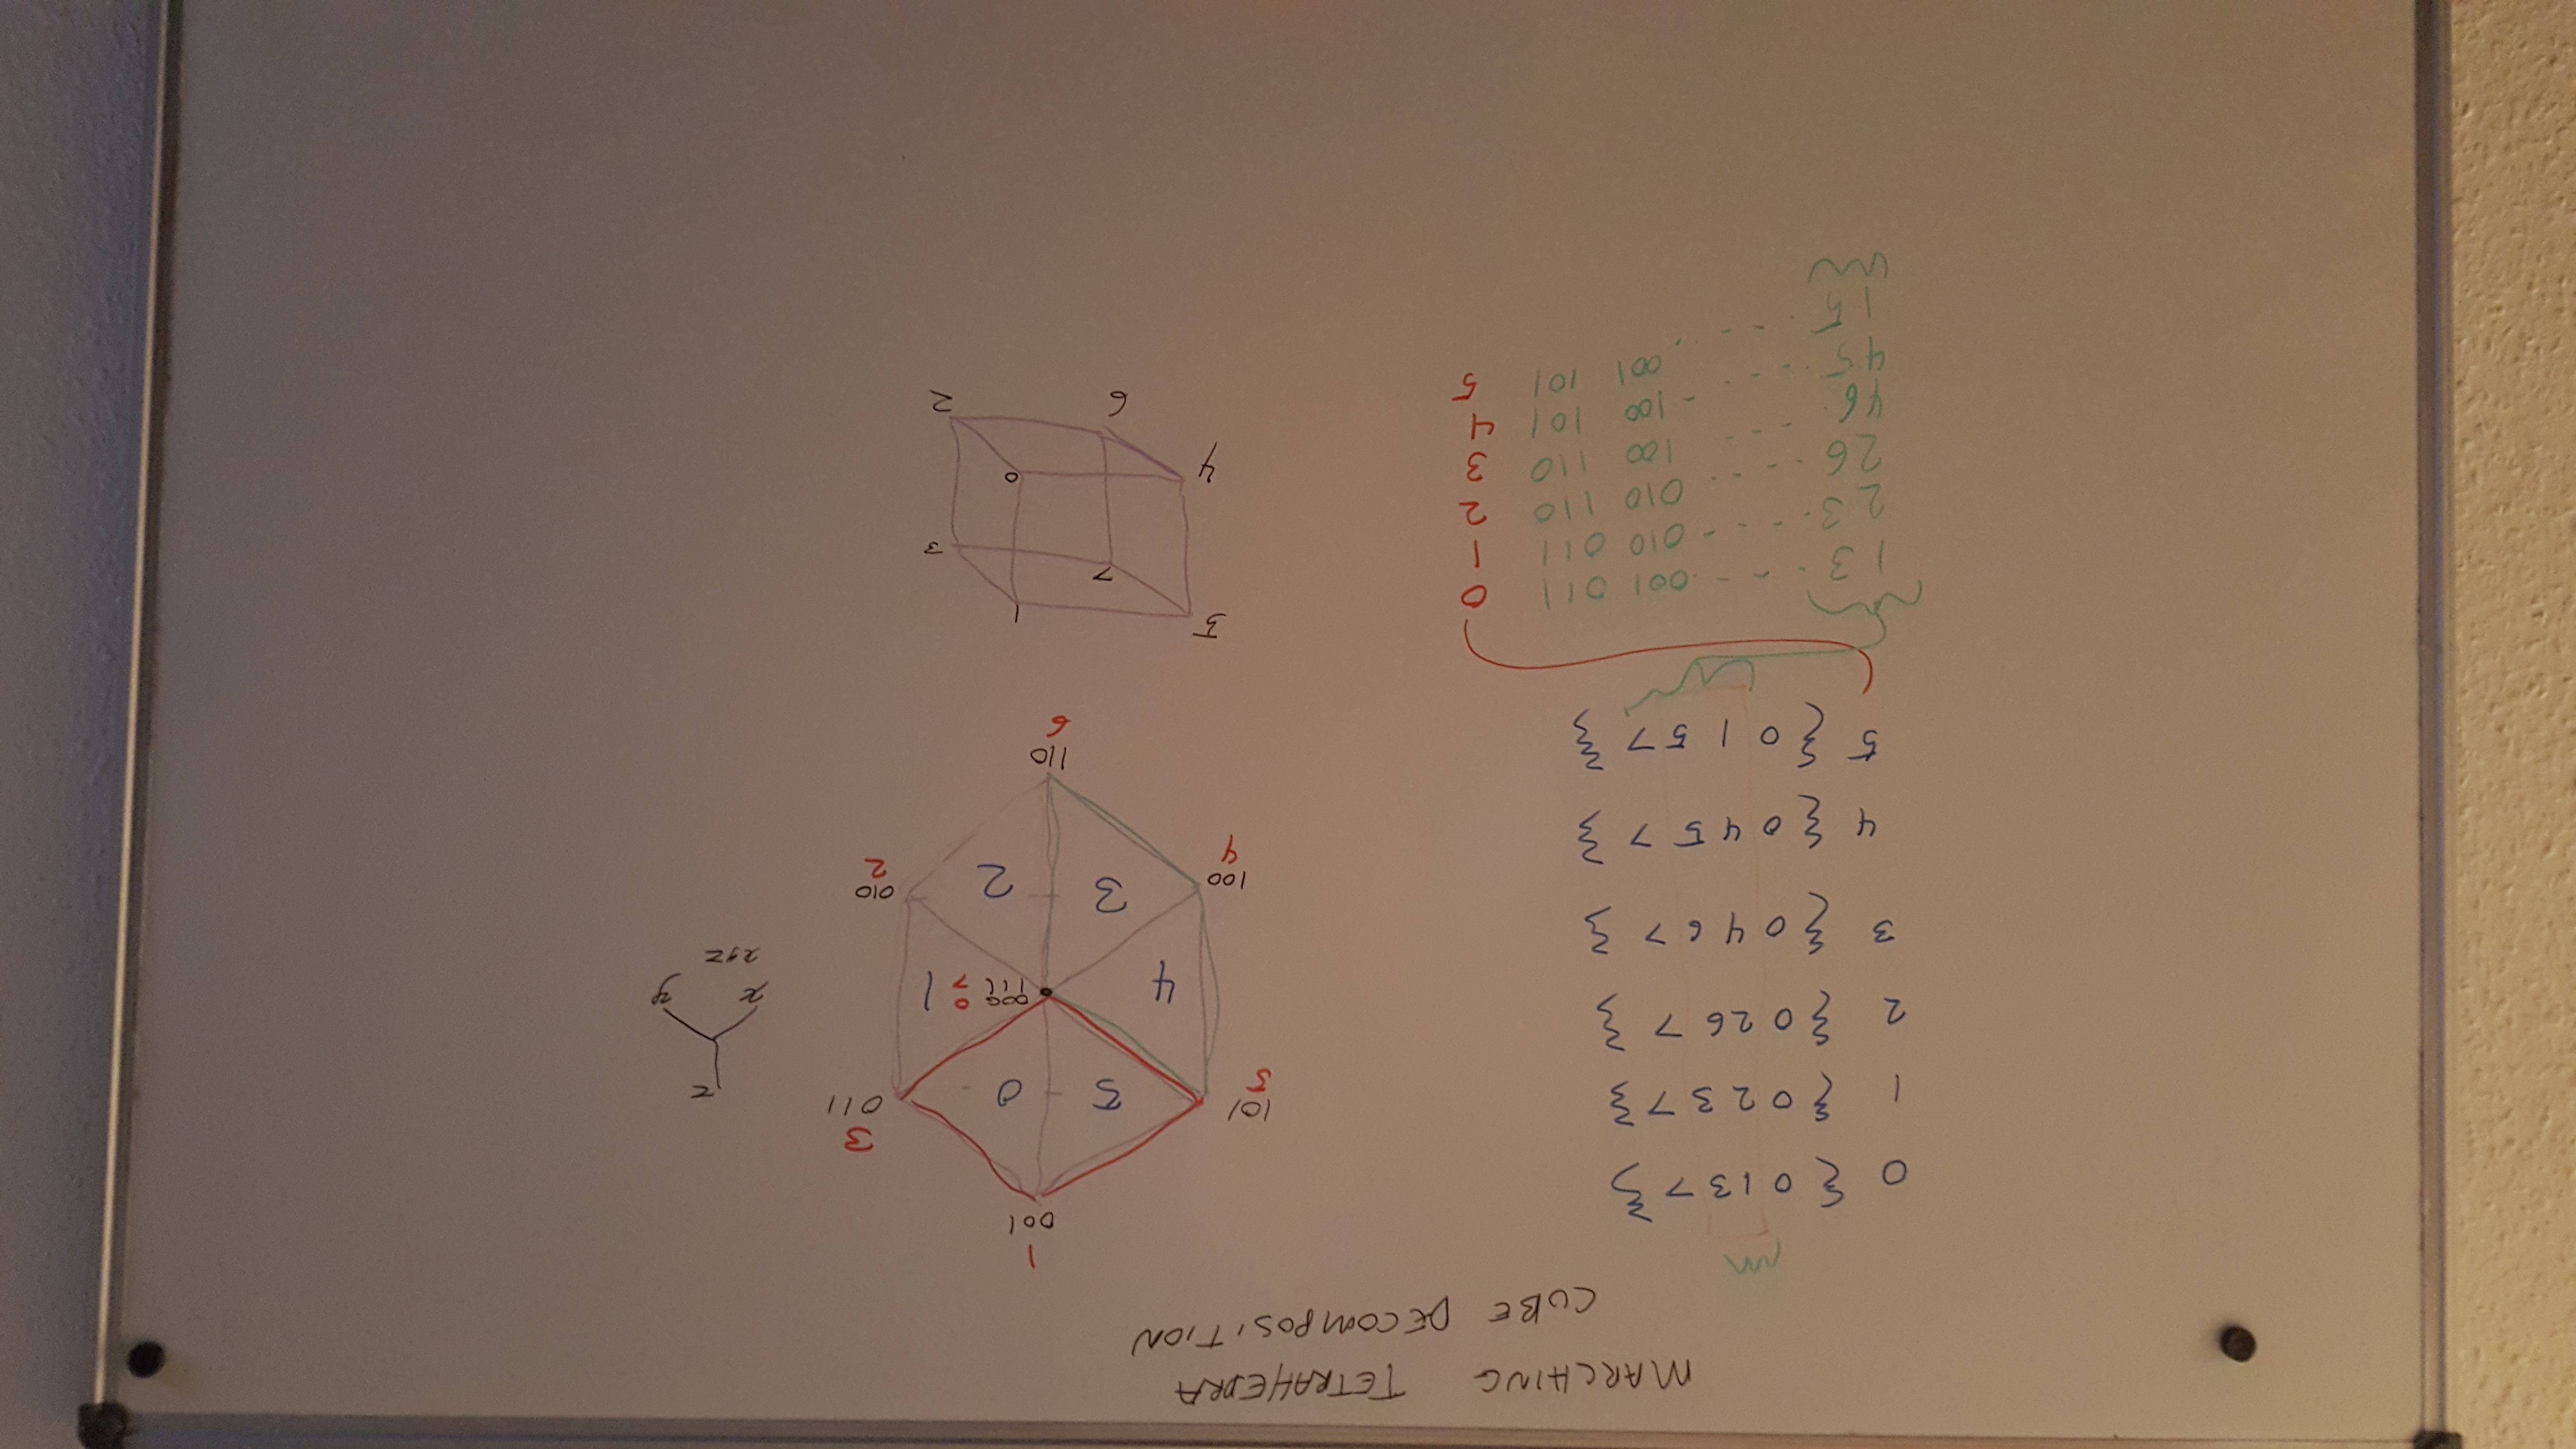 MARCHING TETRAHEDRA
CUBE DECOMPOSITION
0 { 0 1 3 7 }
1 { 0 2 3 7 }
2 { 0 2 6 7 }
3 { 0 4 6 7 }
4 { 0 4 5 7 }
5 { 0 1 5 7 }
1 3 - - - 001 011 0
2 3 - - - - 010 011 1
2 6 - - - 010 110 2
4 6 - - - 100 110 3
4 5 - - - - 100 101 4
1 5 - - - 001 101 5
1
001
101
5
3
011
5 0
4
000 0
111 7
1
3 2
100
4
010
2
110
6
z
x y
xyz
5 1
7 3
4 0
6 2